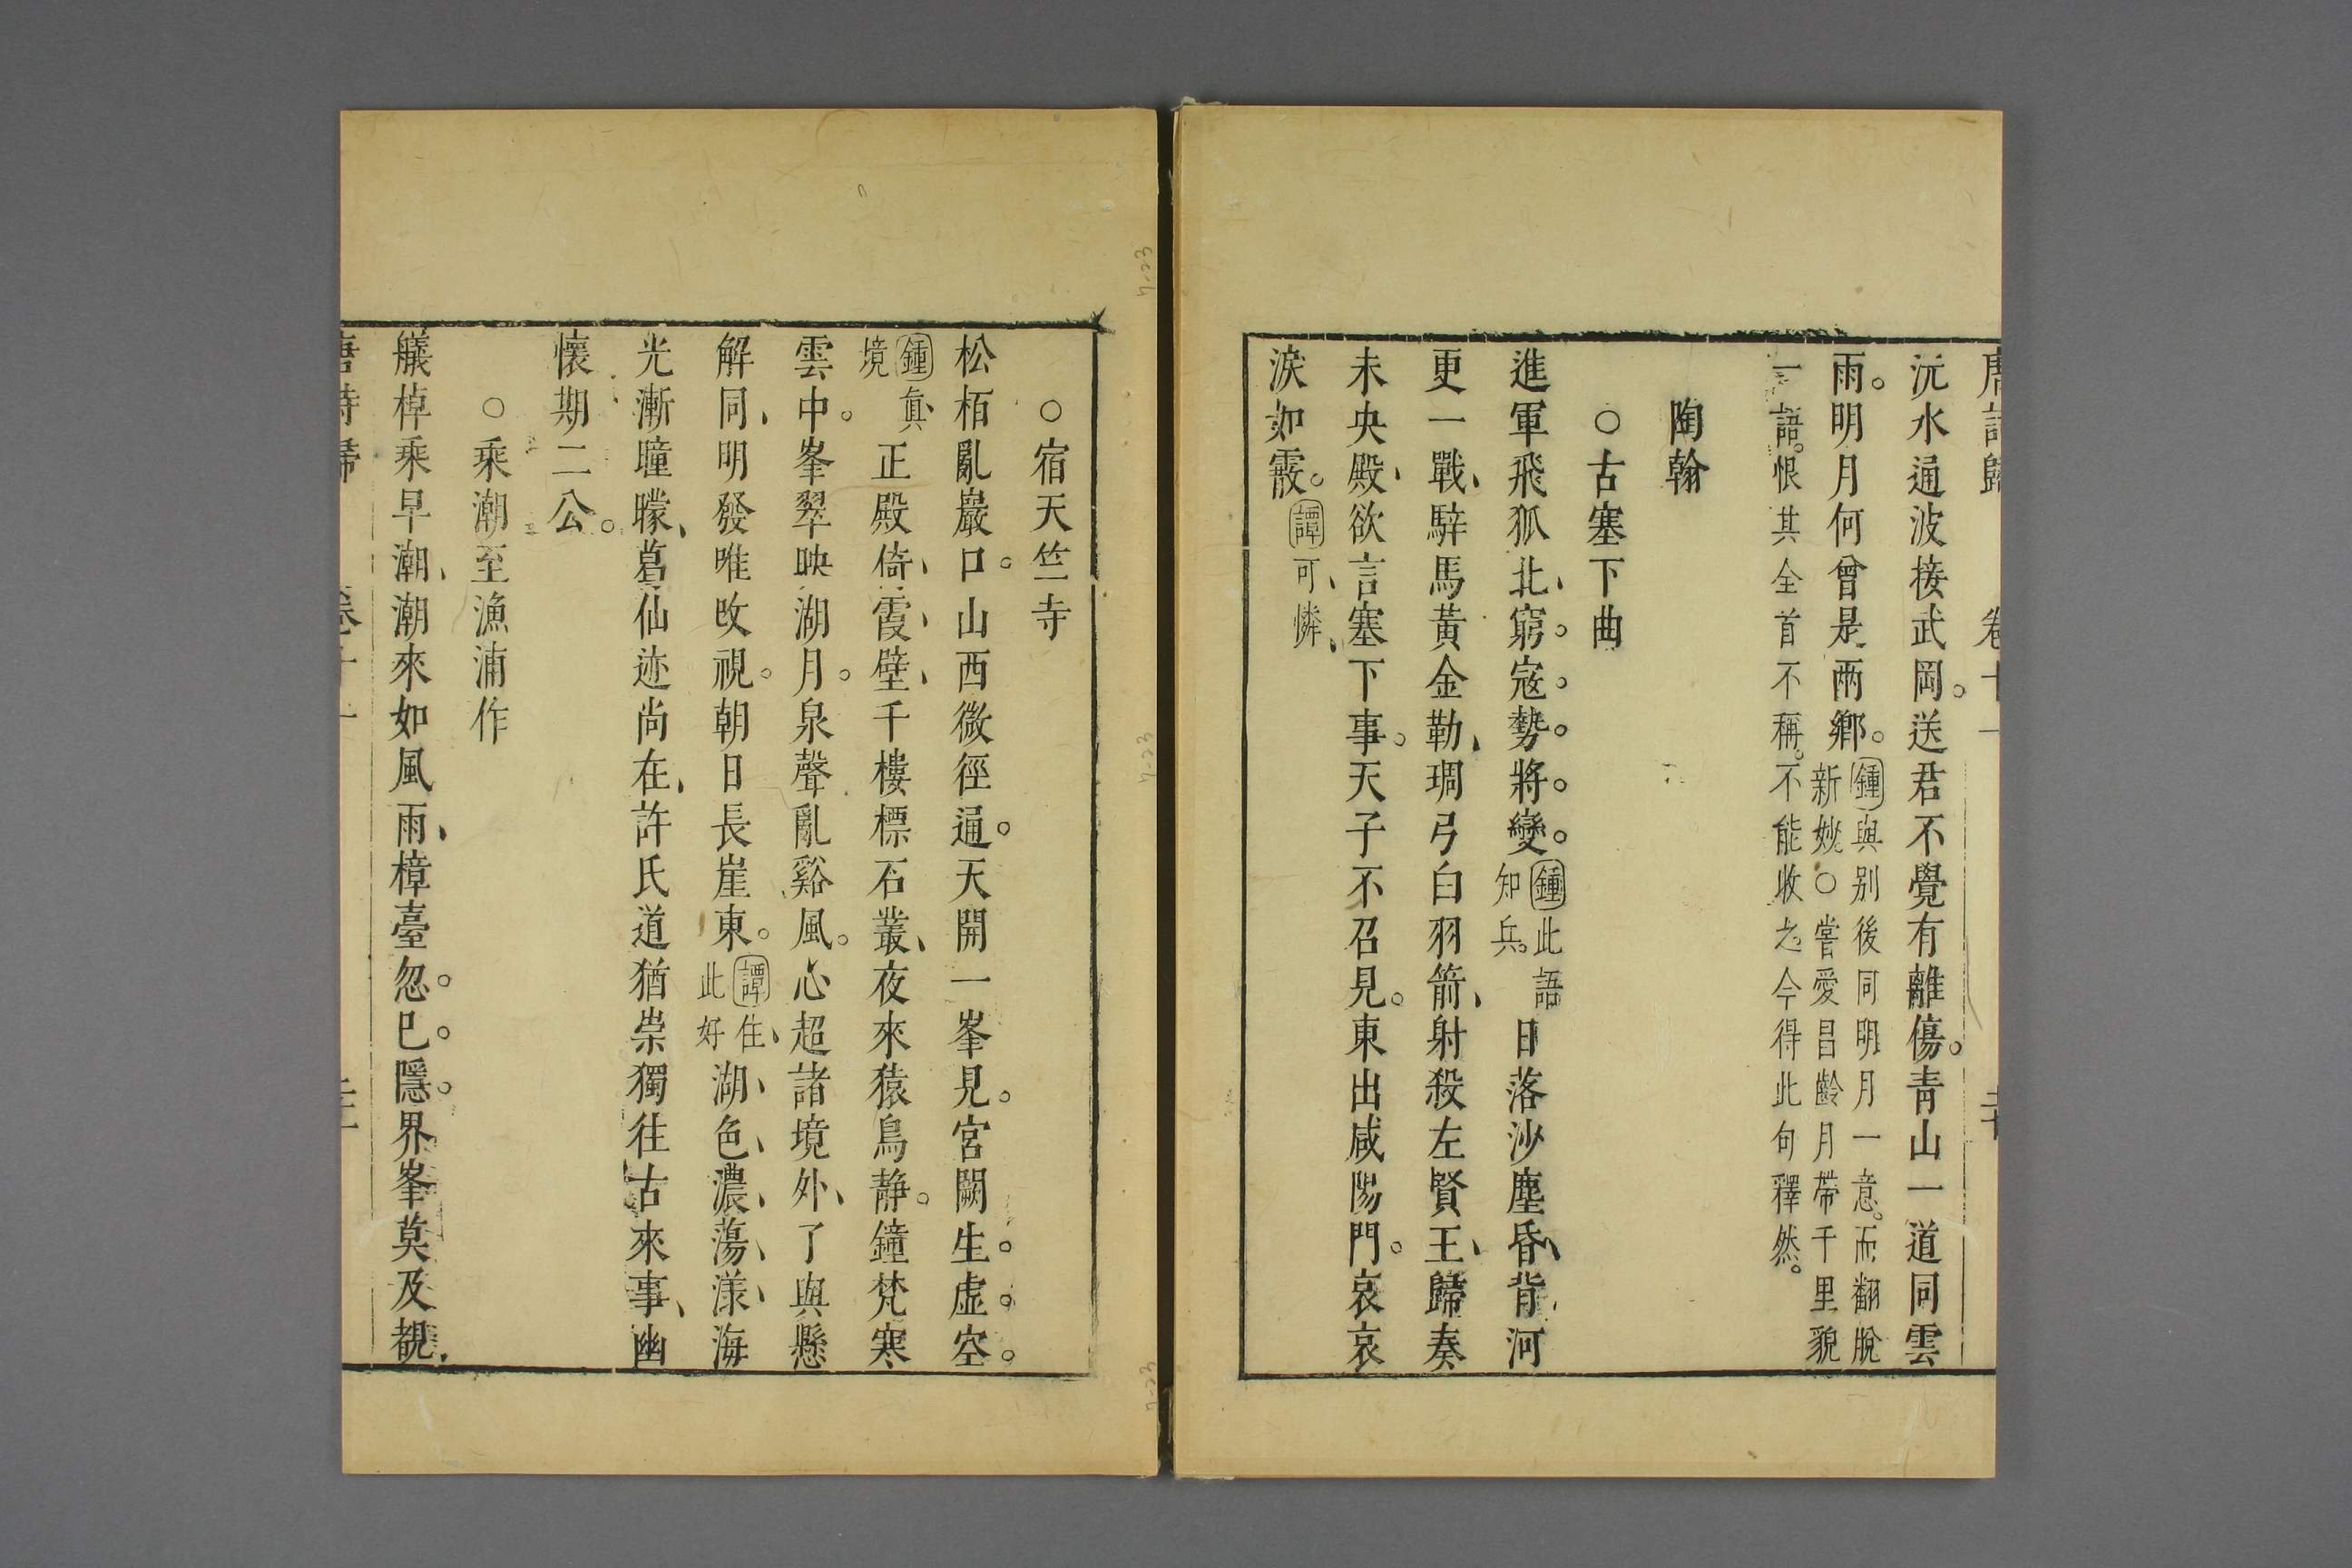 唐詩歸 卷十一 二十
沅水通波接武岡。送君不覺有離傷。青山一道同雲
雨。明月何曾是兩鄉。鍾與別後同明月一意。而翻脫
新妙○嘗愛昌齡月帶千里貌
一語。恨其全首不稱。不能收之今得此句釋然。
陶翰
○古塞下曲
進軍飛狐北、窮寇勢將變。鍾此語
知兵。日落沙塵昏、背河
更一戰、騂馬黃金勒、琱弓白羽箭、射殺左賢王、歸奏
未央殿、欲言塞下事。天子不召見。東出咸陽門。哀哀
淚如霰。譚可憐、
○宿天竺寺
松栢亂巖口。山西微徑通。天開一峯見。宮闕生虛空。
鍾眞、
境正殿倚、霞、壁、千樓標石叢、夜來猿鳥靜。鐘梵寒
雲中。峯翠映湖月。泉聲亂谿風。心超諸境外、了與懸
解同、明發唯改視。朝日長崖東。譚住、
此好湖、色、濃、蕩、漾、海
光漸瞳矇、葛仙迹尚在、許氏道猶崇獨往古來事、幽
懷期二公。
○乘潮至漁浦作
艤棹乘早潮、潮來如風雨、樟臺忽。已。隱。界峯莫及覩、
唐詩歸 卷十一